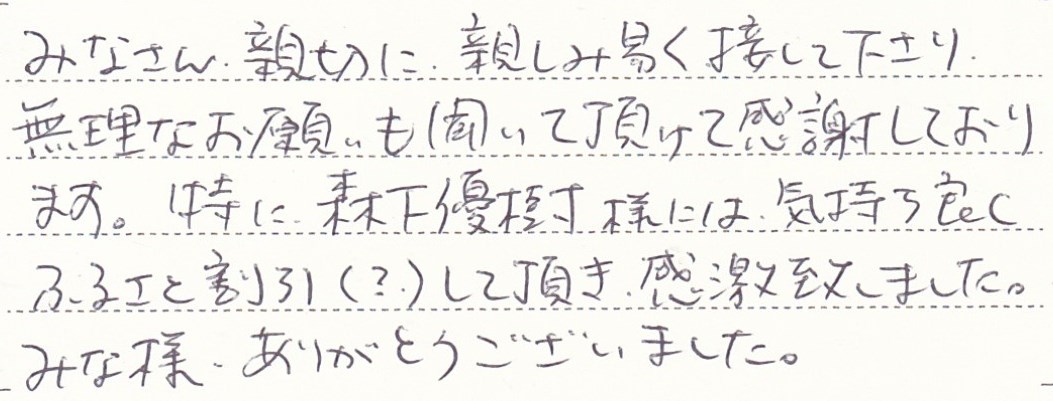 みなさん、親切に、親しみ易く接して下さり、
無理なお願いも聞いて頂けて感謝しており
ます。特に、森下優樹様には、気持ち良く
ふるエと割引(?)して頂き、感激致しました。
みな様、ありがとうございました。